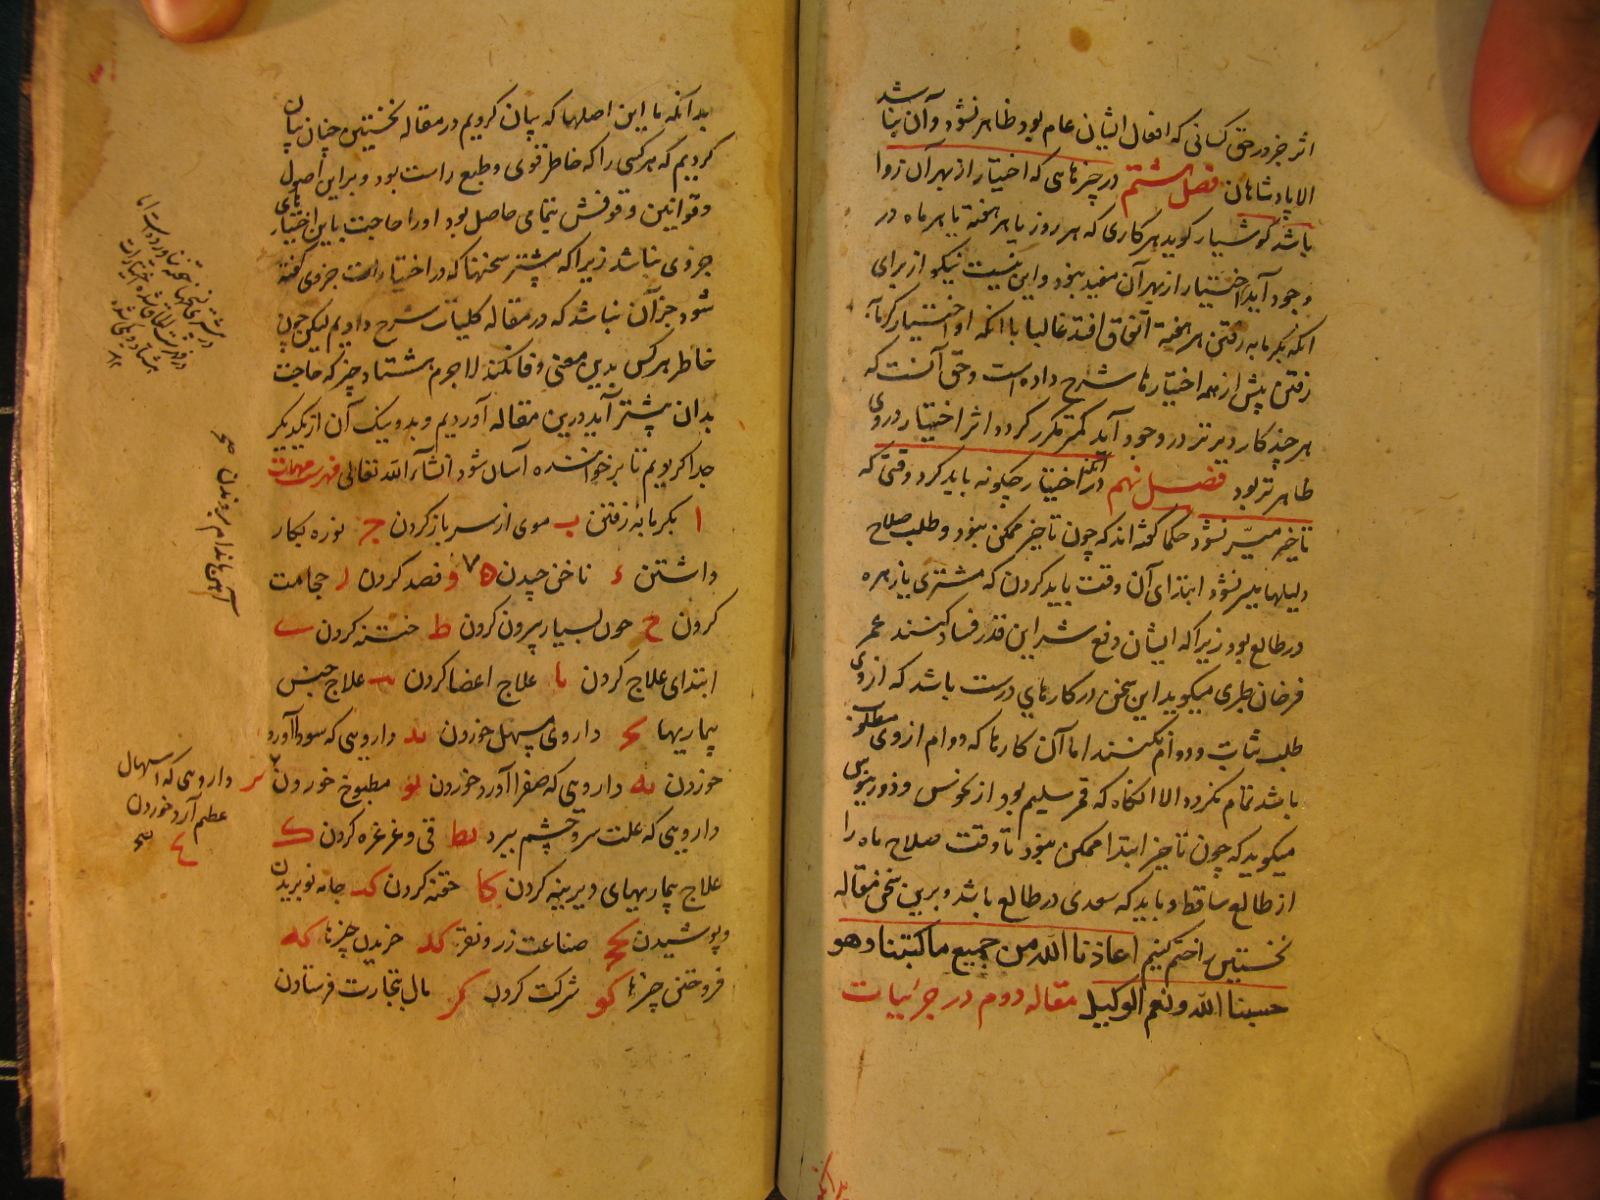 اثر جز در حق کسانی که افعال ایشان عام بود ظاهر نشود و آن نباشد
الا پادشاهان فصل هشتم در چیزهایی که اختیار از بهر آن روا
باشد کوشیار کوید هر کاری که هر روز یا هر هفته یا هر ماه در
وجود آید اختیار از بهر آن مفید نبود و این نیست نیکو از برای
آنکه بکرمابه رفتن هر هفته اتفاق افتد غالبا با آنکه او اختیار کرمابه
رفتن پیش از همه اختیارها شرح داده است و حق آنست که
هر چند کار دیرتر در وجود آید کمتر مکرر کردد اثر اختیار در وی
ظاهرتر بود فصل نهم در آنکه اختیار چکونه باید کرد وقتی که
تاخیر میسر نشود حکما کفته اند که چون تاخیر ممکن نبود و طلب صلاح
دلیلها میسر نشود ابتدای آن وقت باید کردن که مشتری یا زهره
در طالع بود زیرا که ایشان دفع شر این قدر فساد کنند عمر
فرخان طبری میکوید این سخن در کارهای درست باشد که از وی
طلب ثبات و دوام نکنند اما آن کارها که دوام از وی مطلوب
باشد تمام نکردد الا آنکاه که قمر سلیم بود از نحوس و ذوروثیوس
میکوید که چون تاخیر ابتدا ممکن نبود تا وقت صلاح ماه را
از طالع ساقط و باید که سعدی در طالع باشد و برین سخن مقاله
نخستین را ختم کنیم اعاذنا الله من جمیع ما کتبنا و هو
حسبنا الله و نعم الوکیل مقاله دوم در جزئیات
بدانکه
بدانکه ما این اصلها که بیان کردیم در مقاله نخستین چنان بیان
کردیم که هر کسی را که خاطر قوی و طبع راست بود و بر این اصول
و قوانین وقوفش بتمامی حاصل بود او را حاجت باین اختیارهای
جزوی نباشد زیرا که بیشتر سخنها که در اختیارات جزوی کفته
شود جز آن نباشد که در مقاله کلیات شرح دادیم لیکن چون
خاطر هر کس بدین معنی وفا نکند لاجرم هشتاد چیز که حاجت
بدان بیشتر آید درین مقاله آوردیم و بدو نیک آن از یکدیکر
جدا کردیم تا بر خواننده آسان شود انشاء الله تعالی فهرست مهمات
ا بکرمابه رفتن ب موی از سر باز کردن ج نوره بکار
داشتن د ناخن چیدن ه و فصد کردن ز حجامت
کردن ح خون بسیار بیرون کردن ط ختنه کردن ی
ابتدای علاج کردن یا علاج اعضا کردن یب علاج جنس
بیماریها یج داروی مسهل خوردن ید دارویی که سودا آورد
خوردن یه دارویی که صفرا آورد خوردن یو مطبوخ خوردن
دارویی که علت سر و چشم ببرد یط قی و غرغره کردن ک
علاج بیماریهای دیرینه کردن کا حقنه کردن کب جامه نو بریدن
و پوشیدن کج صناعت زر و نقره کد خریدن چیزها که
فروختن چیزها کو شرکت کردن کز مال بتجارت فرستادن
آهن باندام بردن صح
یز دارویی که اسهال
عظیم آرد خوردن
صح